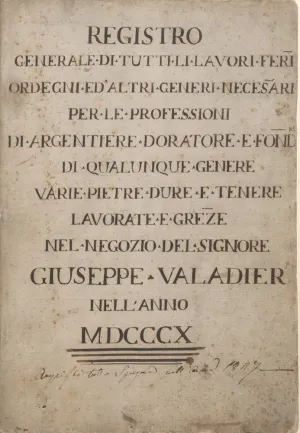 REGISTRO
GENERALE·DI·TUTTI·LI·LAVORI·FERI
ORDEGNI·ED'ALTRI·GENERI·NECES̃ARI
PER·LE·PROFESSIONI
DI·ARGENTIERE·DORATORE·E·FOND
DI·QUALUNQUE·GENERE
VARIE·PIETRE·DURE·E·TENERE
LAVORATE·E·GREZ̃E
NEL·NEGOZIO·DEL·SIGNORE
GIUSEPPE·VALADIER
NELL'ANNO
MDCCCX